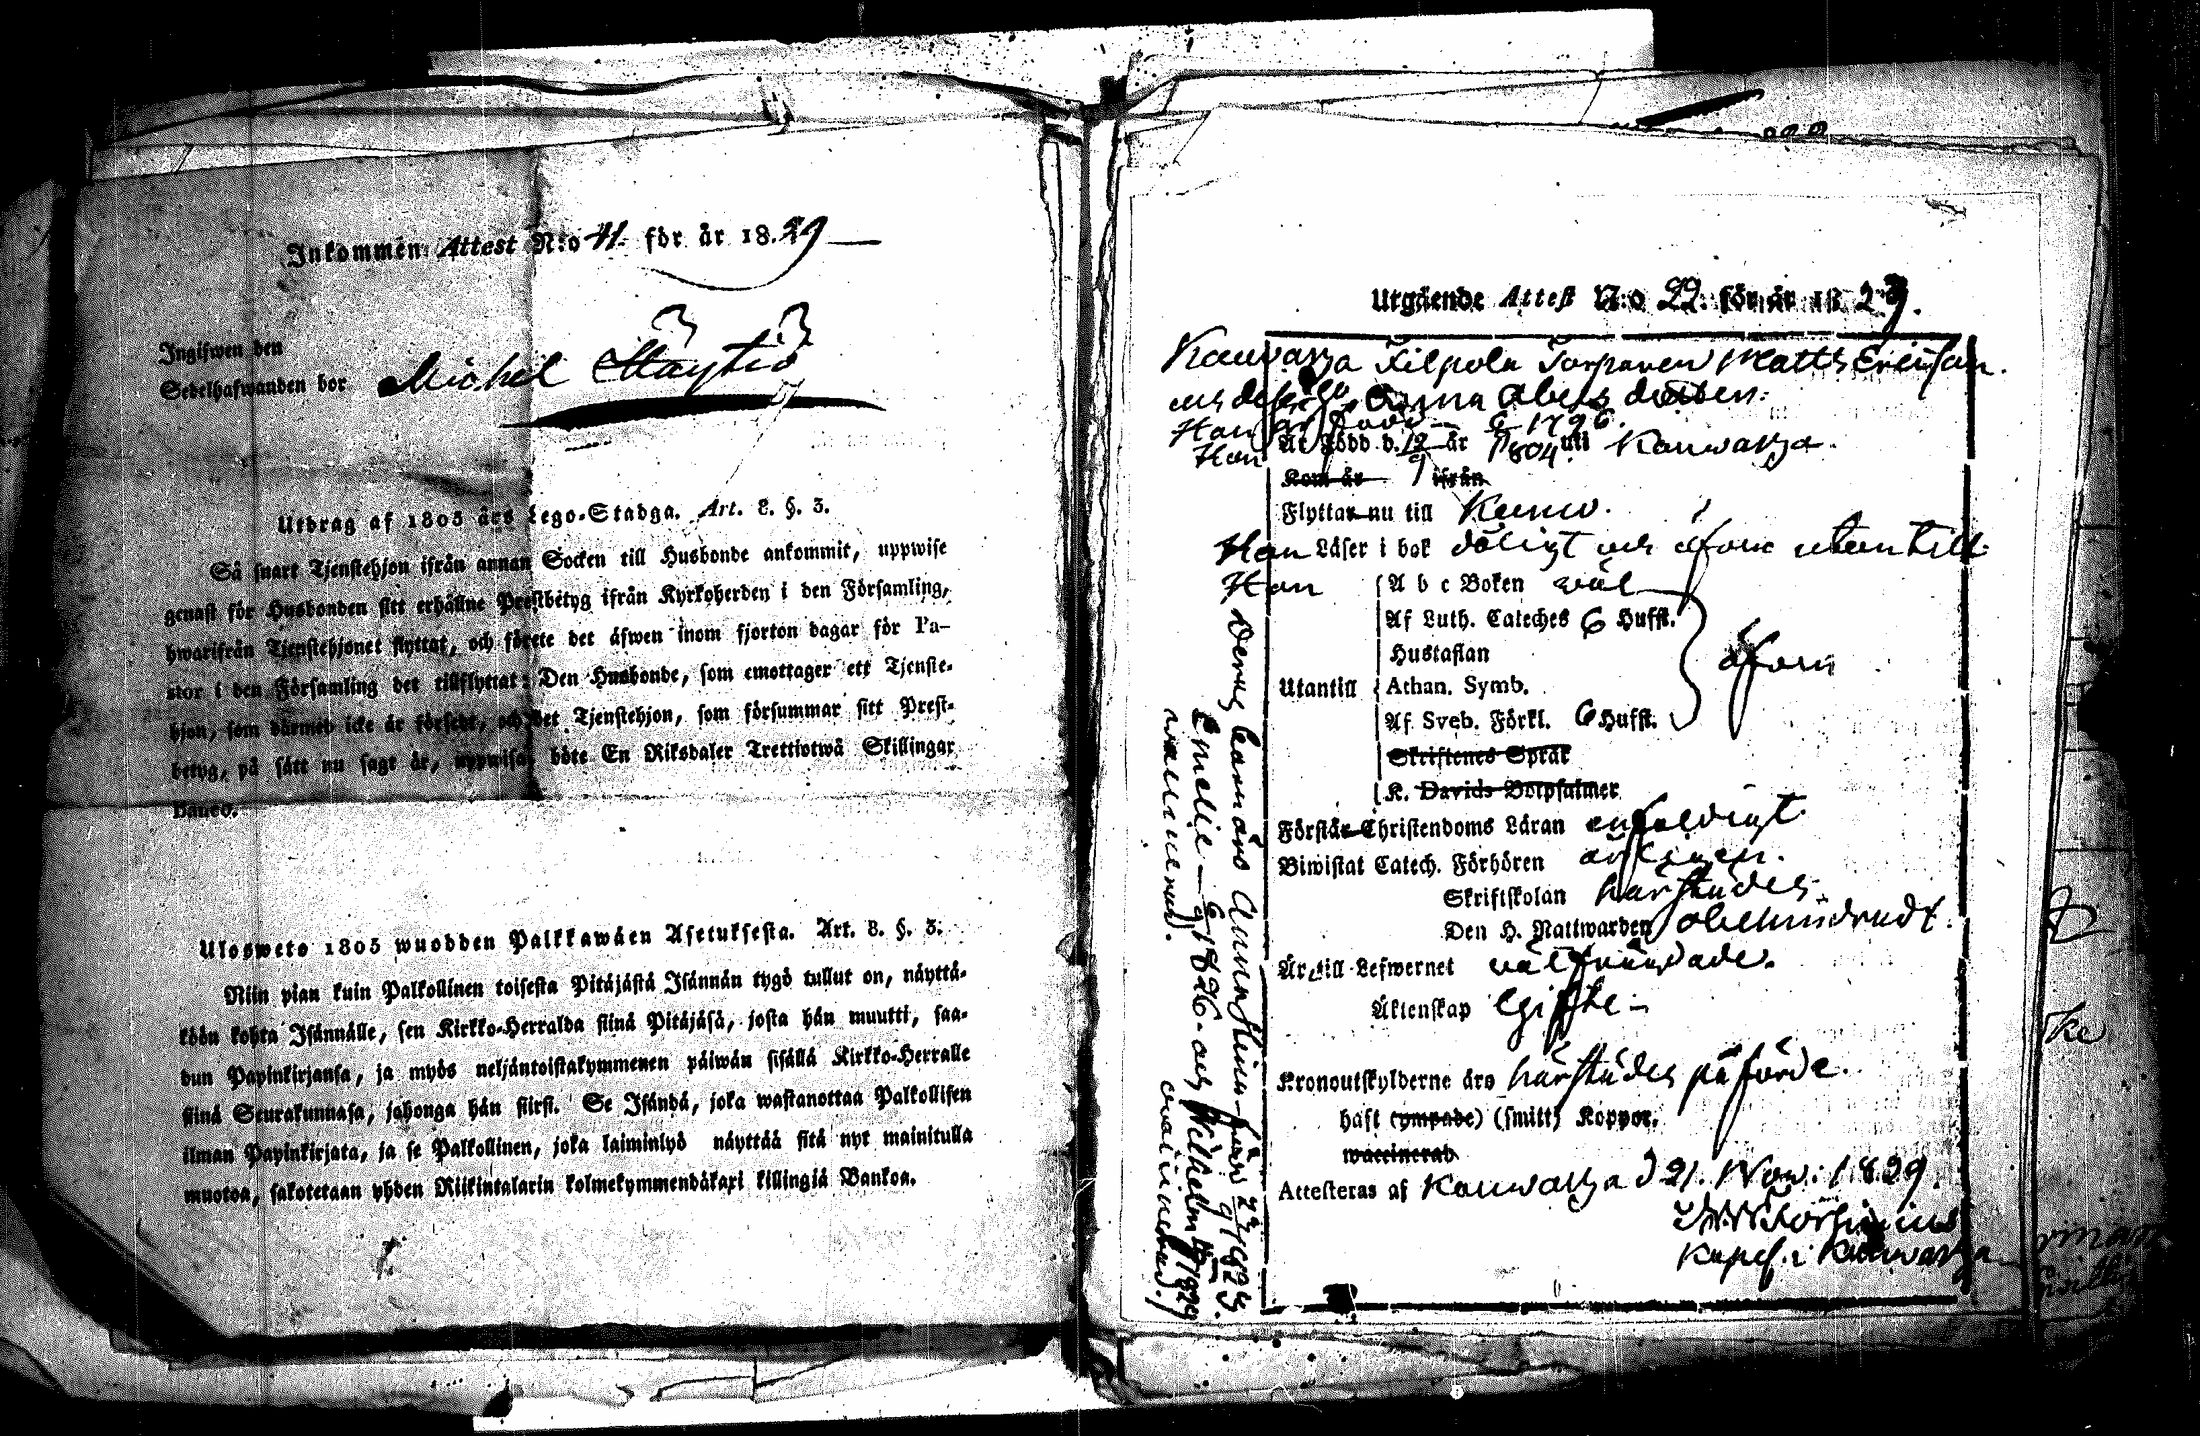 Inkommen Attest N:o 11. för år 1829
Ingifwen den
Sedelhafwanden bor Michel Mäytiö
Utdrag af 1805 års Lego-Stadga. Art. 8. §. 3.
Så snart Tjenstehjon ifrån annan Socken till Husbonde ankommit, uppwise
genast för Husbonden sitt erhållne Prestbetyg ifrån Kyrkoherden i den Församling,
hwarifrån Tjenstehjonet flyttat, och förete det äfwen inom fjorton dagar för Pa-
stor i den Församling det tillflyttat. Den Husbonde, som emottager ett Tjenste-
hjon, som därmed icke är försedt, och det Tjenstehjon, som försummar sitt Prest-
betyg, på sätt nu sagt är, uppwisa, böte En Riksdaler Trettiotwå Skillingar
Banco.
Ulosweto 1805 wuodden Palkkawäen Asetuksesta. Art. 8. §. 3.
Niin pian kuin Palkollinen toisesta Pitäjästä Isännän tygö tullut on, näyttä-
köön kohta Isännälle, sen Kirkko-Herralda siinä Pitäjäsä, josta hän muutti, saa-
dun Papinkirjansa, ja myös neljäntoistakymmenen päiwän sisällä Kirkko-Herralle
siinä Seurakunnasa, johonga hän siirsi. Se Isändä, joka wastanottaa Palkollisen
ilman Papinkirjata, ja se Palkollinen, joka laiminlyö näyttää sitä nyt mainitulla
muotoa, sakotetaan yhden Riikintalarin kolmekymmendäkaxi killingiä Bankoa.
Utgående Attest N:o 22. för år 1829.
Kauvatza Kilpola Torparen Matts Ericsson
och dess Anna Abels dotter.
Han är född 1796.
Hon Är Född d. 12/9 år 1804 uti Kauwatza.
Kom år ifrån
Flyttar nu till Kumo.
Han Läser i bok dåligt och äfven utantill
Hon A b c Boken väl
Af Luth. Cateches 6 Hufst.
Hustaflan
Utantill Athan. Symb. äfven
Af Sveb. Förkl. 6 Hufst.
Skriftenes Språk
K. Davids Botpsalmer
Förstår Christendoms Läran enfaldigt.
Biwistat Catech. Förhören årligen.
Skriftskolan härstädes
Den H. Nattwarden obehindradt.
Är till Lefwernet välfräjdade.
Äktenskap Gifte
Kronoutskylderne äro härstädes påförde.
haft (ympade) (smitt) Koppor.
waccinerad
Attesteras af Kauwatza d 21. Nov: 1829.
Kapel. i Kauwatza
Deras barn äro
Emelie 1826. och Wilhelm 1829